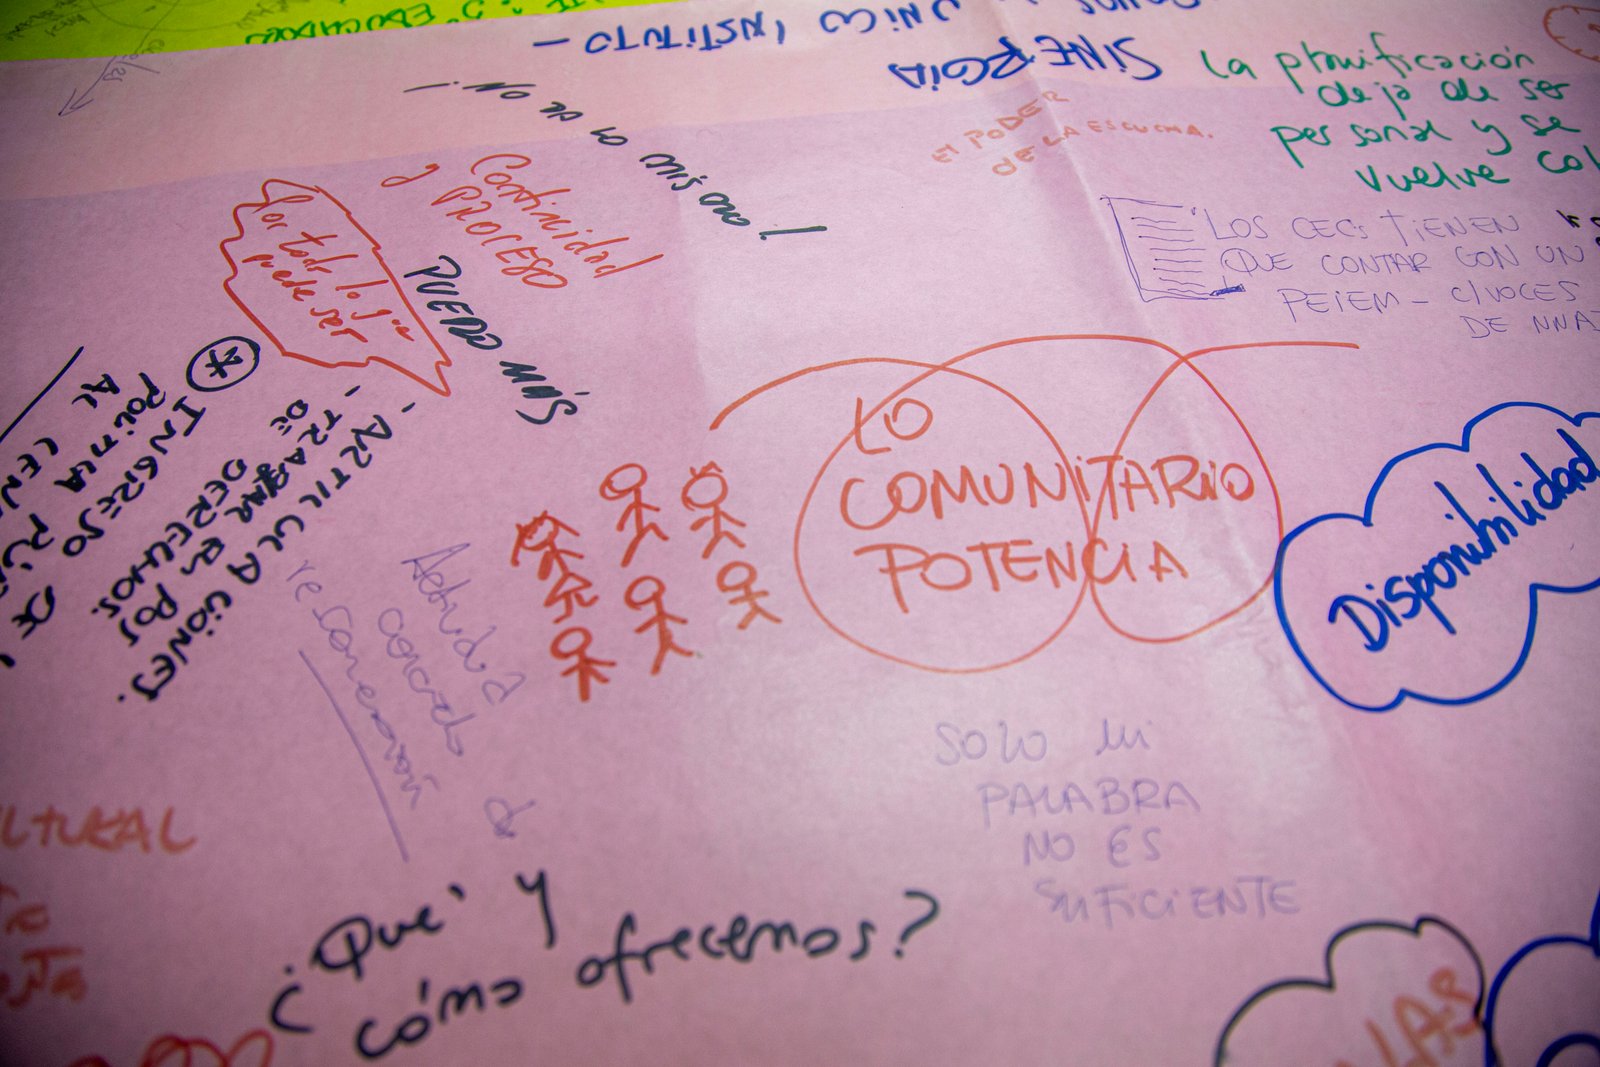 SINERGIA
UNICO INSTITUTO -
¡No da lo mismo!
la planificación
deja de ser
personal y se
vuelve col
El PODER
DE LA ESCUCHA.
Continuidad
y PROCESO
PUEDO MÁS
Por todo lo que
puede ser
LOS CECs TIENEN
QUE CONTAR CON UN
PEIEM - C/VOCES
DE NNA
* INGRESO DE
POLITICA PÚ
AL CEN
- ARTICULACIONES.
- TRABAJAR EN POS
DE DERECHOS.
LO
COMUNITARIO
POTENCIA
Disponibilidad
Actitud
concreta de
SOLO mi
PALABRA
NO ES
SUFICIENTE
LTURAL
¿Qué y
cómo ofrecemos?